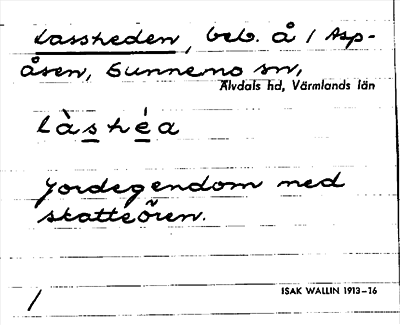 Lassheden, beb. å / Asp-
åsen, Gunnemo sn,
Älvdals hd, Värmlands län
làshéa
Jordegendom med
skatteören.
ISAK WALLIN 1913–16
/